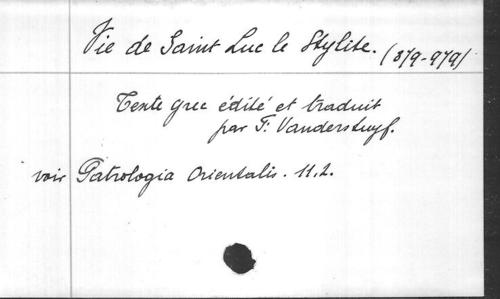 Vie de Saint Luc le Stylite. (879-979)
Texte grec édité et traduit
par F. Vanderstuyf.
voir Patrologia Orientalis. 11,2.